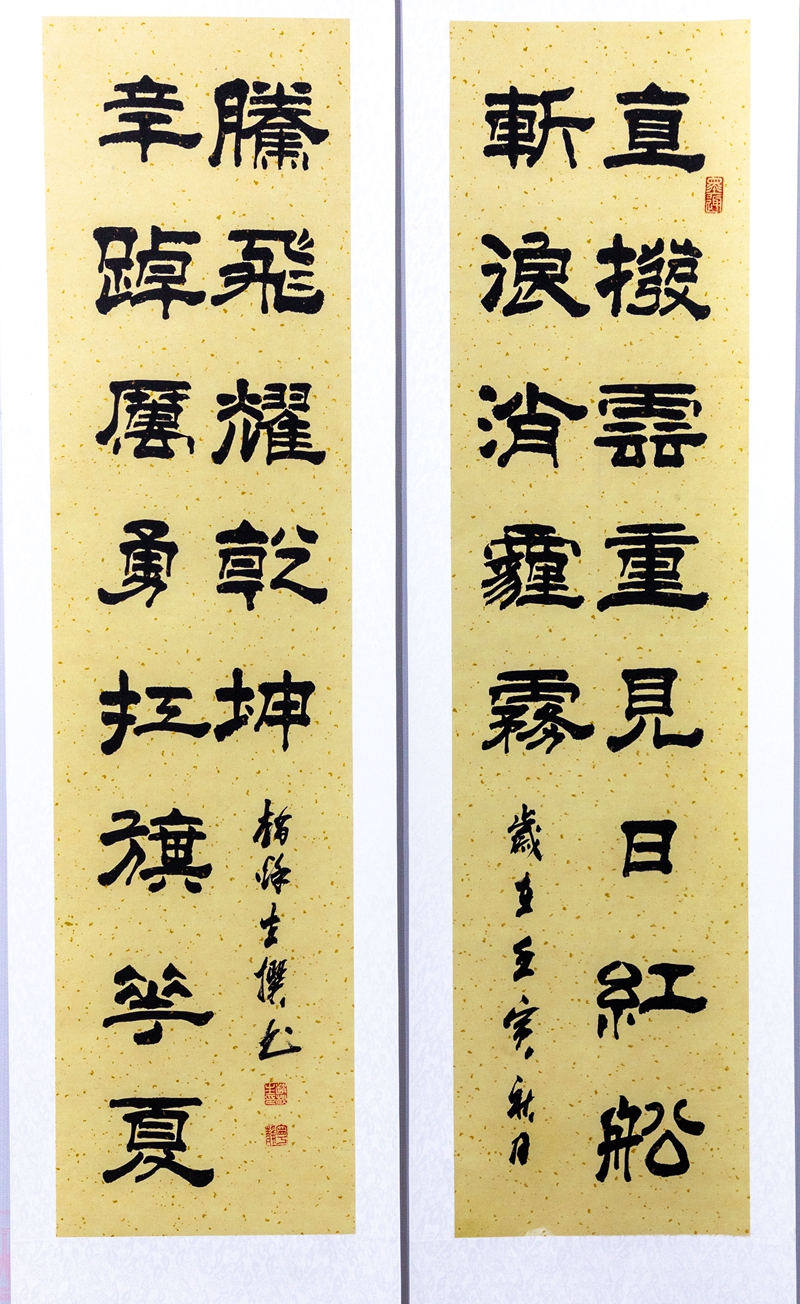 直撥雲重見日紅船
斬浪消霾霧
歲在壬寅秋月
辛踔厲勇扛旗華夏
騰飛耀乾坤
撰書